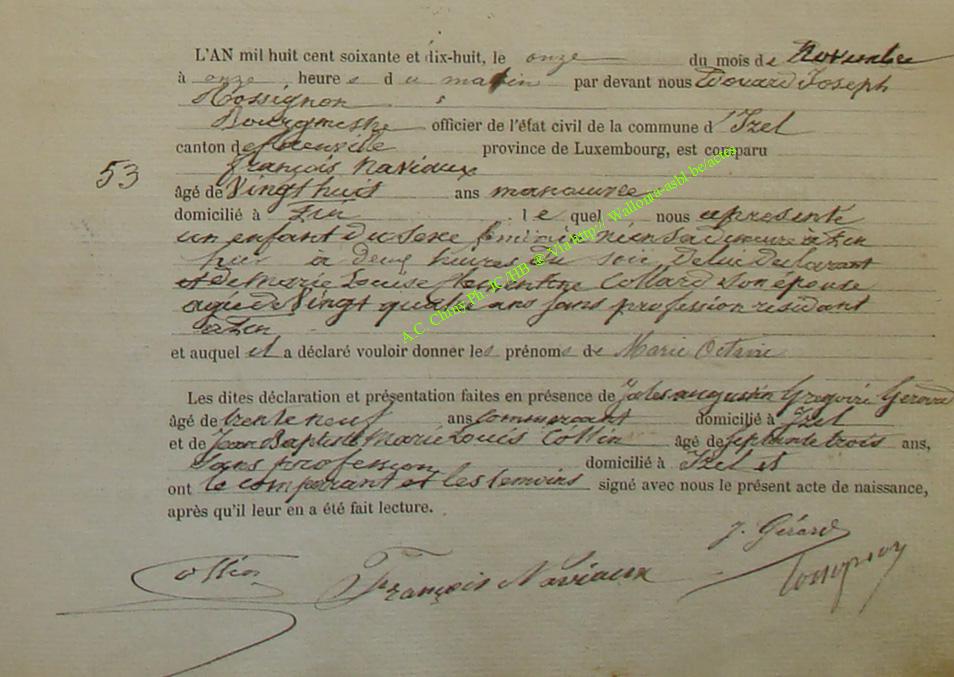 L'AN mil huit cent soixante et dix-huit, le onze du mois de Novembre
à onze heures du matin par devant nous Edouard Joseph
Rossignon
Bourgmestre officier de l'état civil de la commune d'Izel
canton de Florenville province de Luxembourg, est comparu
53
François Naviaux
âgé de Vingt huit ans manœuvre
domicilié à le quel nous a présenté
un enfant du sexe féminin
a deux heures du soir de lui déclarant
et de Marie Louise Clementine Collard son épouse
agée de Vingt quatre ans sans profession résidant
et auquel il a déclaré vouloir donner les prénoms de Marie Octavie
Les dites déclaration et présentation faites en présence de Jules augustin Gregoire Gerard
âgé de trente neuf ans commercant domicilié à Izel
et de Jean Baptiste Marie Louis Collin âgé de septante trois ans,
sans profession domicilié à Izel et
ont le comparant et les temoins signé avec nous le présent acte de naissance,
après qu'il leur en a été fait lecture.
J. Gérard
Collin François Naviaux Rossignon
A.C. Chiny Ph. JC /HB @ Via http:// Wallonia-asbl.be/actes